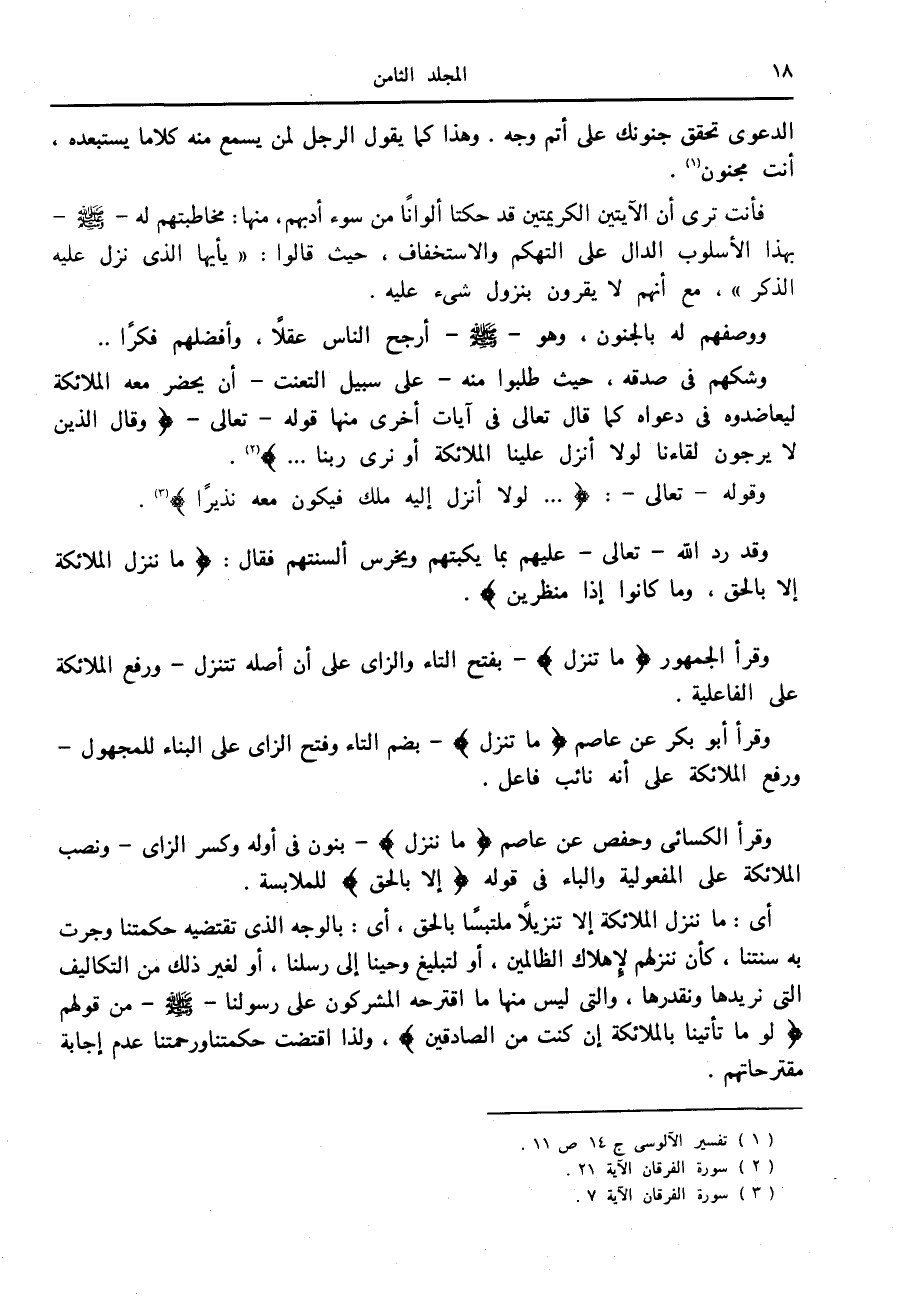 ١٨
المجلد الثامن
الدعوى تحقق جنونك على أتم وجه . وهذا كما يقول الرجل لمن يسمع منه كلاما يستبعده ،
أنت مجنون(١) .
فأنت ترى أن الآيتين الكريمتين قد حكتا ألوانًا من سوء أدبهم، منها: مخاطبتهم له – ﷺ –
بهذا الأسلوب الدال على التهكم والاستخفاف ، حيث قالوا : « يأيها الذى نزل عليه
الذكر » ، مع أنهم لا يقرون بنزول شىء عليه .
ووصفهم له بالجنون ، وهو – ﷺ – أرجح الناس عقلًا ، وأفضلهم فكرًا ..
وشكهم فى صدقه ، حيث طلبوا منه – على سبيل التعنت – أن يحضر معه الملائكة
ليعاضدوه فى دعواه كما قال تعالى فى آيات أخرى منها قوله – تعالى – ﴿ وقال الذين
لا يرجون لقاءنا لولا أنزل علينا الملائكة أو نرى ربنا ... ﴾(٢) .
وقوله – تعالى – : ﴿ ... لولا أنزل إليه ملك فيكون معه نذيرًا ﴾(٣) .
وقد رد الله – تعالى – عليهم بما يكبتهم ويخرس ألسنتهم فقال : ﴿ ما ننزل الملائكة
إلا بالحق ، وما كانوا إذا منظرين ﴾ .
وقرأ الجمهور ﴿ ما تنزل ﴾ – بفتح التاء والزاى على أن أصله تتنزل – ورفع الملائكة
على الفاعلية .
وقرأ أبو بكر عن عاصم ﴿ ما تنزل ﴾ – بضم التاء وفتح الزاى على البناء للمجهول –
ورفع الملائكة على أنه نائب فاعل .
وقرأ الكسائى وحفص عن عاصم ﴿ ما ننزل ﴾ – بنون فى أوله وكسر الزاى – ونصب
الملائكة على المفعولية والباء فى قوله ﴿ إلا بالحق ﴾ للملابسة .
أى : ما ننزل الملائكة إلا تنزيلًا ملتبسًا بالحق ، أى : بالوجه الذى تقتضيه حكمتنا وجرت
به سنتنا ، كأن ننزلهم لإهلاك الظالمين ، أو لتبليغ وحينا إلى رسلنا ، أو لغير ذلك من التكاليف
التى نريدها ونقدرها ، والتى ليس منها ما اقترحه المشركون على رسولنا – ﷺ – من قولهم
﴿ لو ما تأتينا بالملائكة إن كنت من الصادقين ﴾ ، ولذا اقتضت حكمتناورحمتنا عدم إجابة
مقترحاتهم .
( ١ ) تفسير الآلوسى ج ١٤ ص ١١ .
( ٢ ) سورة الفرقان الآية ٢١ .
( ٣ ) سورة الفرقان الآية ٧ .